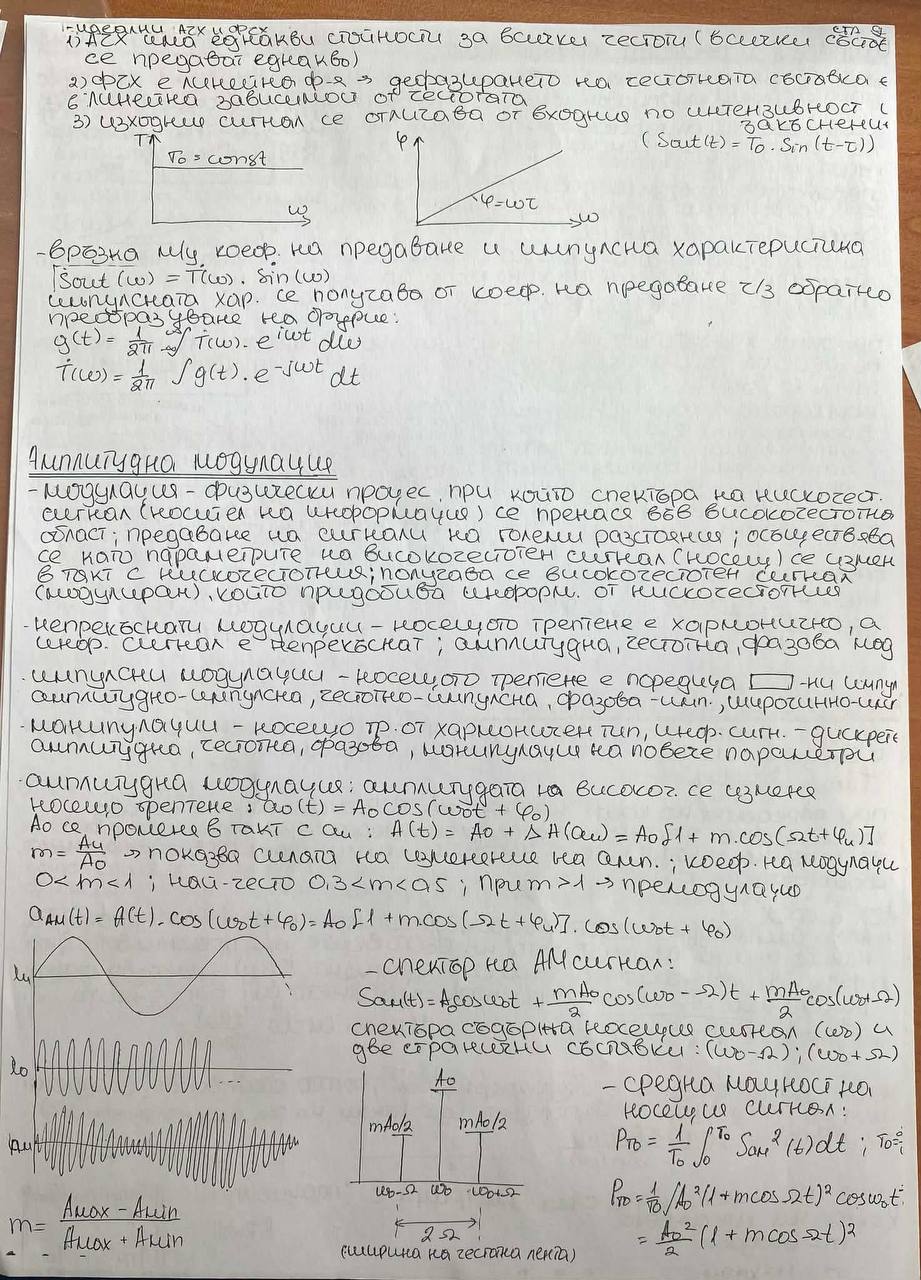 - идеални АЧХ и ФЧХ
1) АЧХ има еднакви стойности за всички честоти (всички състав
се предават еднакво)
2) ФЧХ е линейна ф-я → дефазирането на честотната съставка е
в линейна зависимост от честотата
3) изходния сигнал се отличава от входния по интензивност и
закъснени
(Sout(t) = T₀ . Sin(t-τ))
T
T₀ = const
ω
φ
φ=ωτ
ω
- връзка м/у коеф. на предаване и импулсна характеристика
Ṡout(ω) = Ṫ(ω) . Ṡin(ω)
импулсната хар. се получава от коеф. на предаване ч/з обратно
преобразуване на Фурие:
g(t) = 1/2π -∞∫∞ Ṫ(ω). e^iωt dω
Ṫ(ω) = 1/2π ∫g(t). e^-jωt dt
Амплитудна модулация
- модулация - физически процес, при който спектъра на нискочест.
сигнал (носител на информация) се пренася във високочестотна
област; предаване на сигнали на големи разстояния; осъществява
се като параметрите на високочестотен сигнал (носещ) се измен
в такт с нискочестотния; получава се високочестотен сигнал
(модулиран), който придобива информ. от нискочестотния
- непрекъснати модулации - носещото трептене е хармонично, а
инф. сигнал е непрекъснат; амплитудна, честотна, фазова мод
- импулсни модулации - носещото трептене е поредица ▭-ни импул
амплитудно-импулсна, честотно-импулсна, фазова-имп., широчинно-имп
- манипулации - носещо тр. от хармоничен тип, инф. сигн. - дискрете
амплитудна, честотна, фазова, манипулация на повече параметри
- амплитудна модулация: амплитудата на високоч. се изменя
носещо трептене: a₀(t) = A₀cos(ω₀t + φ₀)
A₀ се променя в такт с aи: A(t) = A₀ + ΔA(aи) = A₀[1 + m.cos(Ωt+φи)]
m = Aи/A₀ → показва силата на изменение на амп.; коеф. на модулаци
0<m<1; най-често 0,3<m<0,5; При m>1 → премодулация
aAM(t) = A(t). cos(ω₀t+φ₀) = A₀[1+mcos(Ωt+φи)]. cos(ω₀t + φ₀)
- спектър на АМ сигнал:
Sам(t) = A₀cosω₀t + mA₀/2 cos(ω₀-Ω)t + mA₀/2 cos(ω₀+Ω)
спектъра съдържа носещия сигнал (ω₀) и
две странични съставки: (ω₀-Ω); (ω₀+Ω)
...
A₀
mA₀/2
mA₀/2
ω₀-Ω ω₀ ω₀+Ω
2Ω
(ширина на честотна лента)
m = Amax - Amin / Amax + Amin
- средна мощност на
носещия сигнал:
PT₀ = 1/T₀ ∫₀^T₀ Sам²(t)dt ; T₀=
PT₀ = 1/T₀ ∫A₀²(1+mcosΩt)²cosω₀t
= A₀²/2 (1+mcosΩt)²